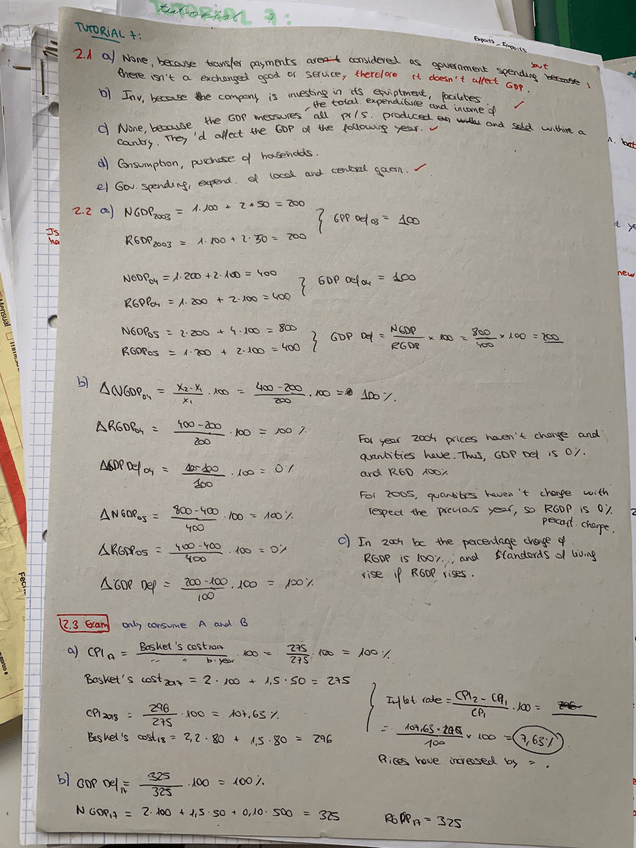 TUTORIAL 7:
Exports - Imports
2.1 a) None, because transfer payments aren't considered as government spending because, but
there isn't a exchanged good or service, therefore it doesn't affect GDP.
b) Inv, because the company is investing in its equiptment, facilites.
c) None, because the GDP measures the total expenditure and income of all pr/s. produced and sold within a
country. They'd affect the GDP of the following year.
d) Consumption, purchase of households.
e) Gov. spending, expend. of local and central govern.
2.2 a) NGDP2003 = 1·100 + 2·50 = 200
RGDP2003 = 1·100 + 2·50 = 200
GDP Def03 = 100
NGDP04 = 1·200 + 2·100 = 400
RGDP04 = 1·200 + 2·100 = 400
GDP Def04 = 100
NGDP05 = 2·200 + 4·100 = 800
RGDP05 = 1·200 + 2·100 = 400
GDP Def = NGDP/RGDP × 100 = 800/400 × 100 = 200
b) ΔNGDP04 = X2-X1/X1 · 100 = 400-200/200 · 100 = 100%.
ΔRGDP04 = 400-200/200 · 100 = 100%
ΔGDP Def04 = 100-100/100 · 100 = 0%
ΔNGDP05 = 800-400/400 · 100 = 100%
ΔRGDP05 = 400-400/400 · 100 = 0%
ΔGDP Def = 200-100/100 · 100 = 100%
For year 2004 prices haven't change and
quantities have. Thus, GDP Def is 0%.
and RGD 100%
For 2005, quantities haven't change with
respect the previous year, so RGDP is 0%
percent. change.
c) In 2004 bc the percentage change of
RGDP is 100%, and standards of living
rise if RGDP rises.
2.3 Exam only consume A and B
a) CPI17 = Basket's cost2017/" " b. year · 100 = 275/275 · 100 = 100%
Basket's cost2017 = 2·100 + 1,5·50 = 275
CPI2018 = 296/275 · 100 = 107,63%
Basket's cost18 = 2,2·80 + 1,5·80 = 296
Inflat rate = CPI2 - CPI1/CPI1 · 100 =
= 107,63-100/100 × 100 = 7,63%
Prices have increased by
b) GDP Def17 = 325/325 · 100 = 100%
NGDP17 = 2·100 + 1,5·50 + 0,10·500 = 325
RGDP17 = 325